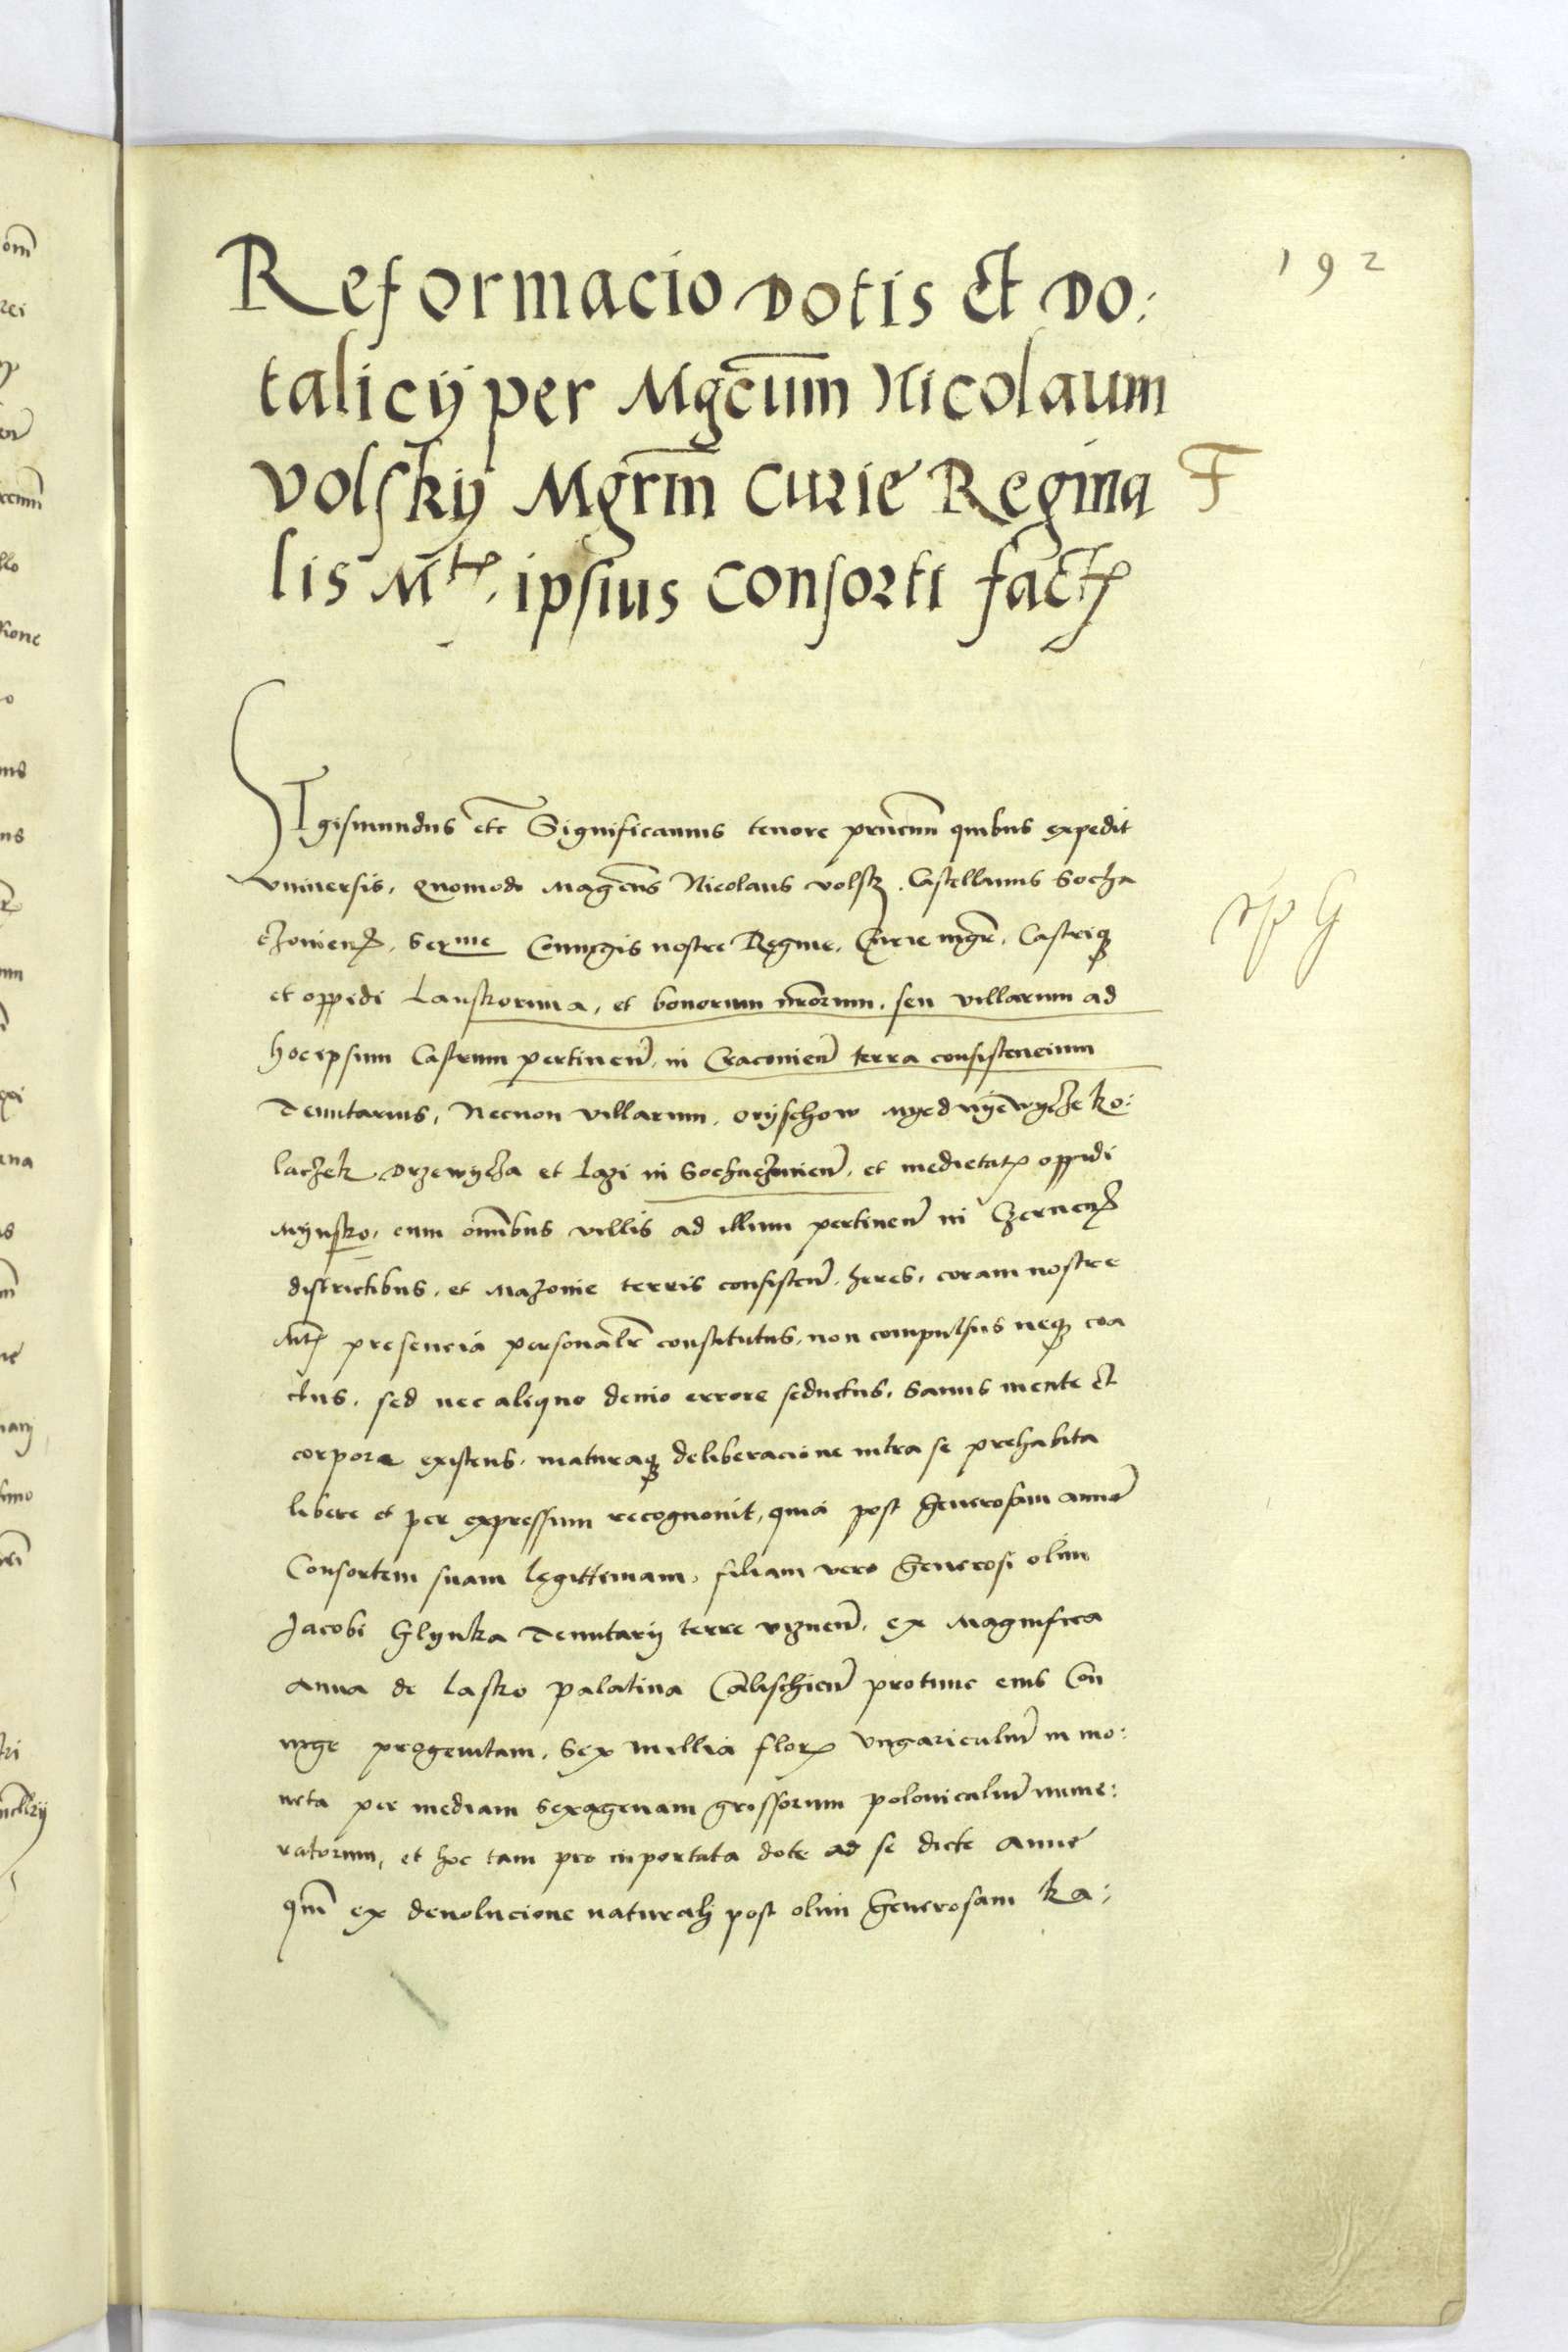 192
Reformacio dotis et do:
talicij per Mgcum Nicolaum
Volskij Mgrm Curie Regina
lis Mtis ipsius Consorti fact
F
SIgismundus etc Significamus tenore prncium quibus expedit
vniversis, Quomodo Magcus Nicolaus volsky Castellanus Socha
czovien, Serme Coniugis nostre Regine, Curie mgr, Castrique
et oppidi Lanskoruna, et bonorum nrorum, seu villarum ad
hoc ipsum Castrum pertinen, in Cracovien terra consistencium
Tenutarius, Necnon villarum, oryschow nyednyewycze ko:
laczek drzewycza et Lazi in Sochaczovien, et medietatis oppidi
Mynsko, cum omnibus villis ad illum pertinen in Czernen
districtibus, et Mazovie terris consisten, heres, coram nostre
Mtis presencia personalr constitutus, non compulsus neque coa
ctus, sed nec aliquo devio errore seductus, Sanus mente et
corpore existens, maturaque deliberacione intra se prehabita
libere et per expressum recognovit, quia post Generosam anne
Consortem suam legittimam, filiam vero Generosi olim
Jacobi Glynka Tenutarij terre viznen, ex Magnifica
Anna de Lasko palatina Calischien protunc eius Con
iuge progenitam, Sex millia flor Vngariculim in mo:
neta per mediam sexagenam grossorum polonicalim nume:
ratorum, et hoc tam pro importata dote ad se dicte Anne
qm ex devolucione naturali post olim Generosam Ka: